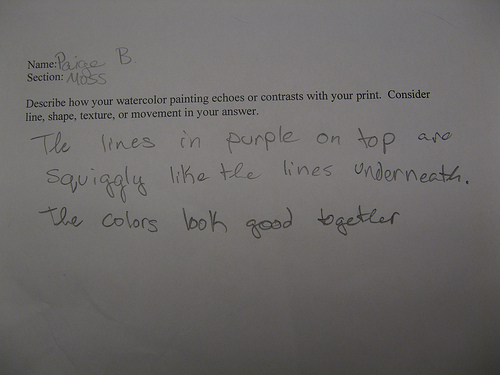 Name: Paige B.
Section: Moss
Describe how your watercolor painting echoes or contrasts with your print. Consider
line, shape, texture, or movement in your answer.
The lines in purple on top are
squiggly like the lines underneath.
The colors look good together